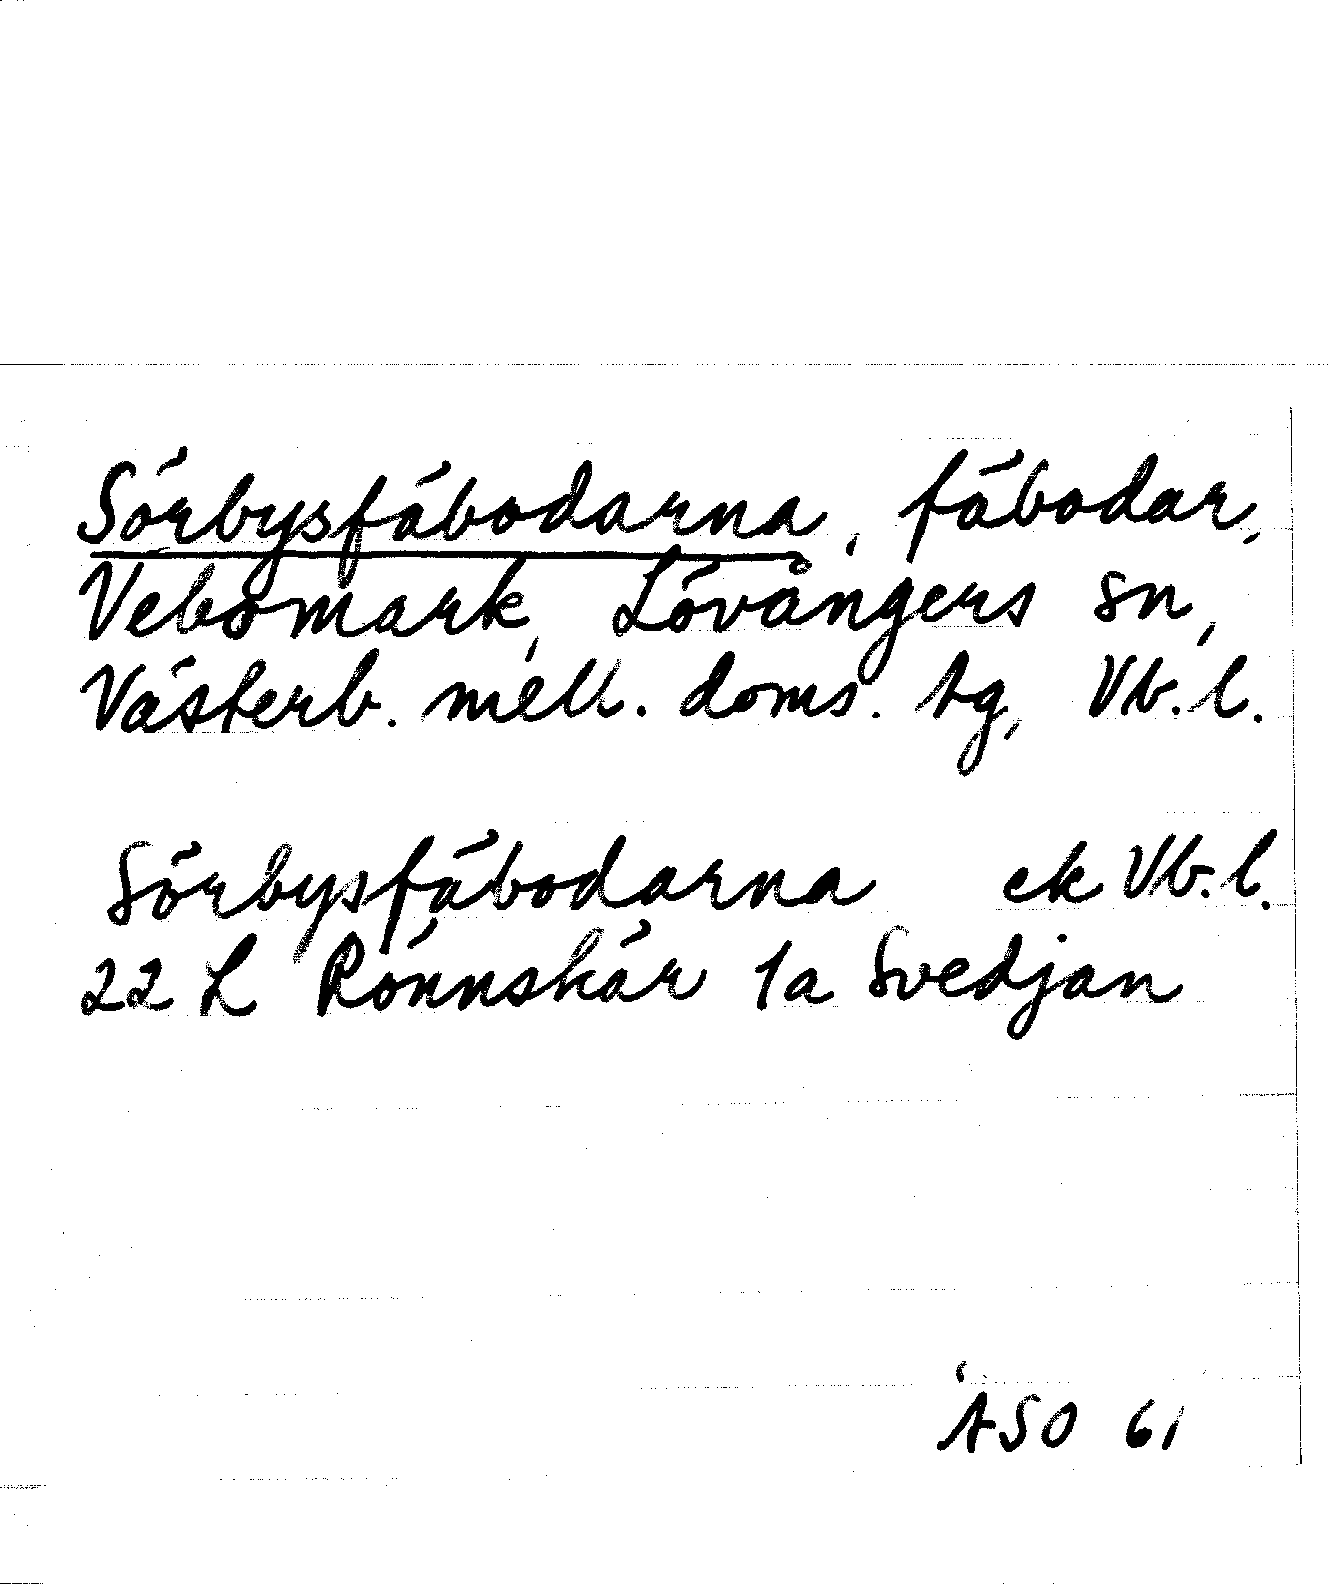 Sörbysfäbodarna, fäbodar,
Vebomark, Lövångers sn,
Västerb. mell. doms. tg, Vb. l.
Sörbysfäbodarna ek Vb. l.
22 L Rönnskär 1a Svedjan
ÅSO 61